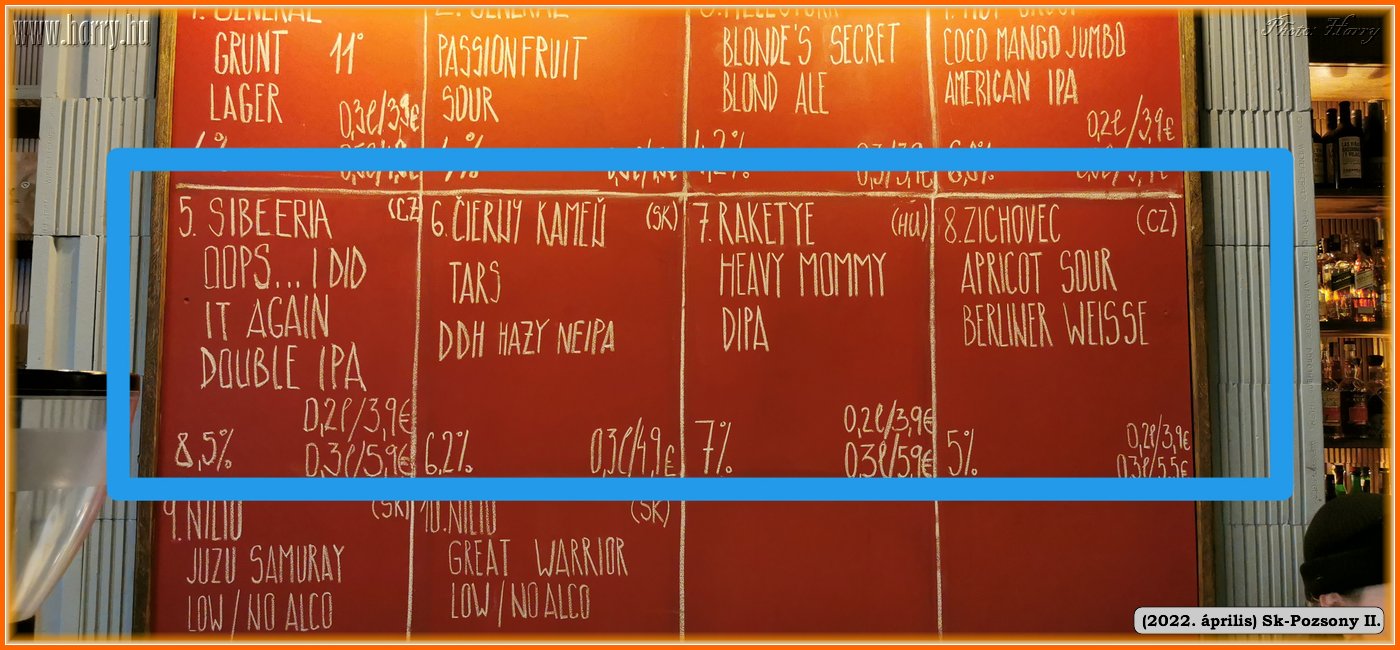 www.harry.hu
Photo: Harry
GRUNT 11°
LAGER
0,3l/3,9€
PASSIONFRUIT
SOUR
BLONDE'S SECRET
BLOND ALE
COCO MANGO JUMBO
AMERICAN IPA
0,2l/3,9€
5. SIBEERIA (CZ
OOPS... I DID
IT AGAIN
DOUBLE IPA
0,2l/3,9€
8,5% 0,3l/5,9€
6. ČIERNÝ KAMEŇ (SK)
TARS
DDH HAZY NEIPA
6,2% 0,3l/4,9€
7. RAKETYE (HÚ)
HEAVY MOMMY
DIPA
0,2l/3,9€
7% 0,3l/5,9€
8. ZICHOVEC (CZ)
APRICOT SOUR
BERLINER WEISSE
0,2l/3,9€
5% 0,3l/5,5€
9. NILIO (SK)
JUZU SAMURAY
LOW/NO ALCO
10. NILIO (SK)
GREAT WARRIOR
LOW/NO ALCO
(2022. április) Sk-Pozsony II.